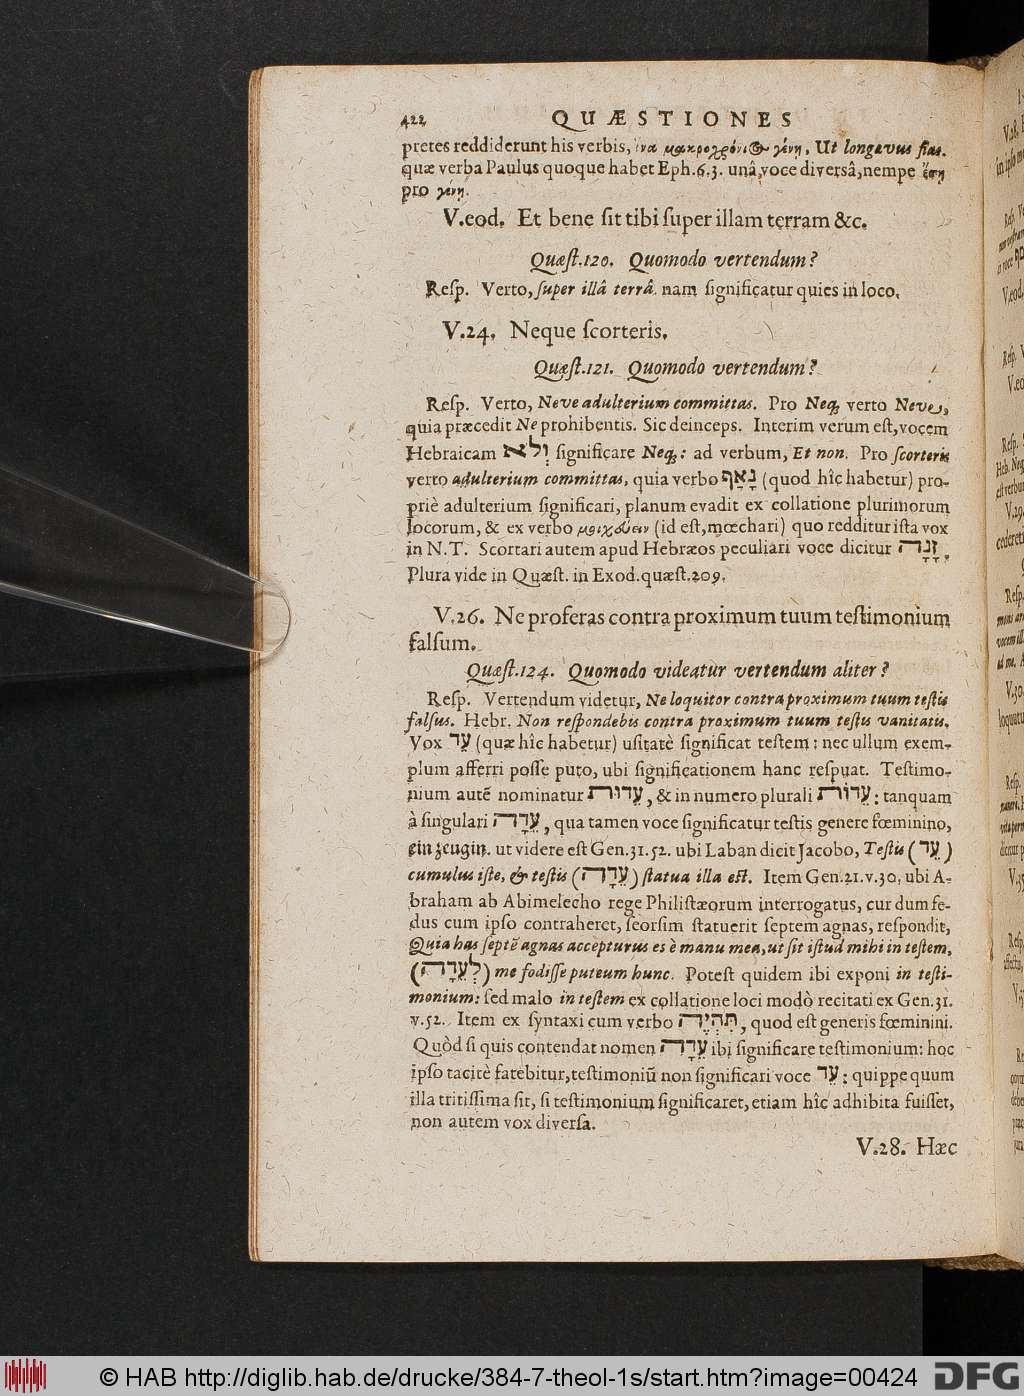 422 QUÆSTIONES
pretes reddiderunt his verbis, ἵνα μακροχρόνιος γένῃ. Ut longævus fias.
quæ verba Paulus quoque habet Eph.6.3. unâ voce diversâ, nempe ἔσῃ
pro γένῃ.
V.eod. Et bene sit tibi super illam terram &c.
Quæst.120. Quomodo vertendum?
Resp. Verto, super illâ terrâ. nam significatur quies in loco.
V.24. Neque scorteris.
Quæst.121. Quomodo vertendum?
Resp. Verto, Neve adulterium committas. Pro Neq; verto Neve,
quia præcedit Ne prohibentis. Sic deinceps. Interim verum est, vocem
Hebraicam וְלֹא significare Neq;: ad verbum, Et non. Pro scorteris
verto adulterium committas, quia verbo נָאַף (quod hîc habetur) pro-
priè adulterium significari, planum evadit ex collatione plurimorum
locorum, & ex verbo μοιχεύειν (id est, mœchari) quo redditur ista vox
in N.T. Scortari autem apud Hebræos peculiari voce dicitur זָנָה.
Plura vide in Quæst. in Exod.quæst.209.
V.26. Ne proferas contra proximum tuum testimonium
falsum.
Quæst.124. Quomodo videatur vertendum aliter?
Resp. Vertendum videtur, Ne loquitor contra proximum tuum testis
falsus. Hebr. Non respondebis contra proximum tuum testis vanitatis.
Vox עֵד (quæ hîc habetur) usitatè significat testem: nec ullum exem-
plum afferri posse puto, ubi significationem hanc respuat. Testimo-
nium autē nominatur עֵדוּת, & in numero plurali עֵדוֹת: tanquam
à singulari עֵדָה, qua tamen voce significatur testis genere fœminino,
ein zeugin. ut videre est Gen.31.52. ubi Laban dicit Jacobo, Testis (עֵד)
cumulus iste, & testis (עֵדָה) statua illa est. Item Gen.21.v.30. ubi A-
braham ab Abimelecho rege Philistæorum interrogatus, cur dum fe-
dus cum ipso contraheret, seorsim statuerit septem agnas, respondit,
Quia has septē agnas accepturus es è manu mea, ut sit istud mihi in testem,
(לְעֵדָה) me fodisse puteum hunc. Potest quidem ibi exponi in testi-
monium: sed malo in testem ex collatione loci modò recitati ex Gen.31.
v.52. Item ex syntaxi cum verbo תִּהְיֶה, quod est generis fœminini.
Quòd si quis contendat nomen עֵדָה ibi significare testimonium: hoc
ipso tacitè fatebitur, testimoniū non significari voce עֵד: quippe quum
illa tritissima sit, si testimonium significaret, etiam hîc adhibita fuisset,
non autem vox diversa.
V.28. Hæc
© HAB http://diglib.hab.de/drucke/384-7-theol-1s/start.htm?image=00424
DFG